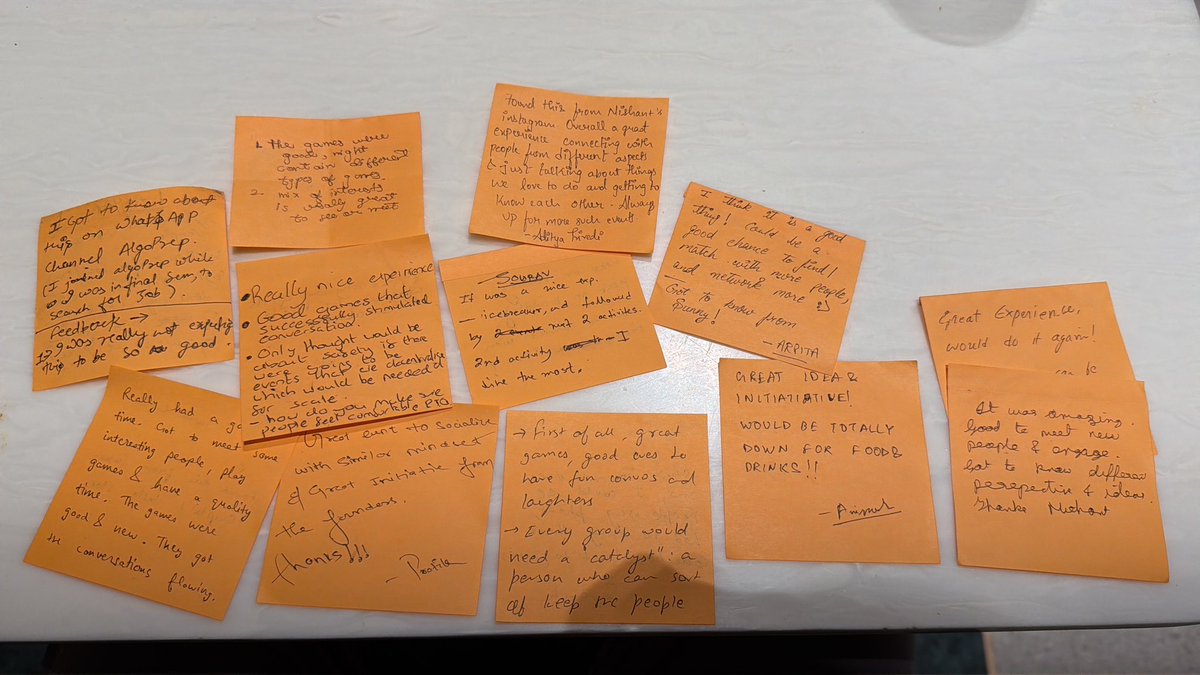 I Got to know about
this on WhatsApp
channel AlgoPrep.
(I joined algoPrep while
I was in final Sem, to
search for Job).
feedback →
I was really not expecting
this to be so good.
1. The games were
good, might
contain different
types of games.
2. mix of interests
is really great
to see or meet
Found this from Nishant's
instagram. Overall a great
experience connecting with
people from different aspects
& just talking about things
we love to do and getting to
know each other. Always
up for more such events.
- Aditya
I think it is a good
thing! Could be a
good chance to find/
match with more people,
and network more :)
Got to know from
Sunny!
- ARPITA
• Really nice experience
• Good games that
successfully stimulated
conversation.
• Only thought would be
about safety is there
were going to be
events that are decentralise
which would be needed
for scale.
- how do you make sure
people feel comfortable PTO
SOURAV
It was a nice exp.
- icebreaker, and followed
by next 2 activities.
2nd activity I
like the most.
Great Experience,
would do it again!
can be
Really had a
time. Got to meet some
interesting people, play
games & have a quality
time. The games were
good & new. They got
the conversations flowing.
Great event to socialize
with similar minded
& Great Initiative from
the founders.
thanks!!!
- Pratik
→ First of all, great
games, good cues to
have fun convos and
laughters
→ Every group would
need a "catalyst": a
person who can sort
of keep the people
GREAT IDEA &
INITIATIATIVE!
WOULD BE TOTALLY
DOWN FOR FOOD &
DRINKS!!
It was amazing.
Good to meet new
people & engage.
Got to know different
perspective & ideas.
Thanks Nishant